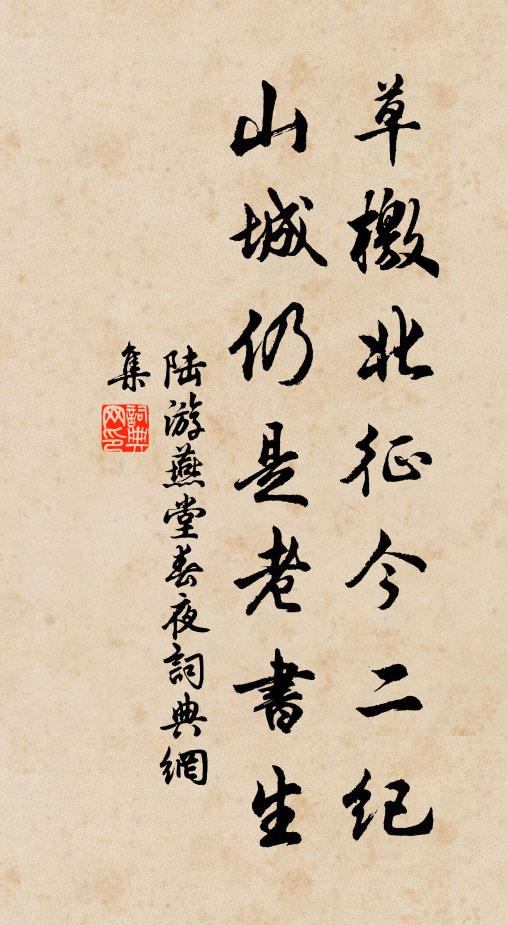 草檄北征今二纪
山城仍是老書生
陆游燕堂春夜詞典網
集
詞典网印